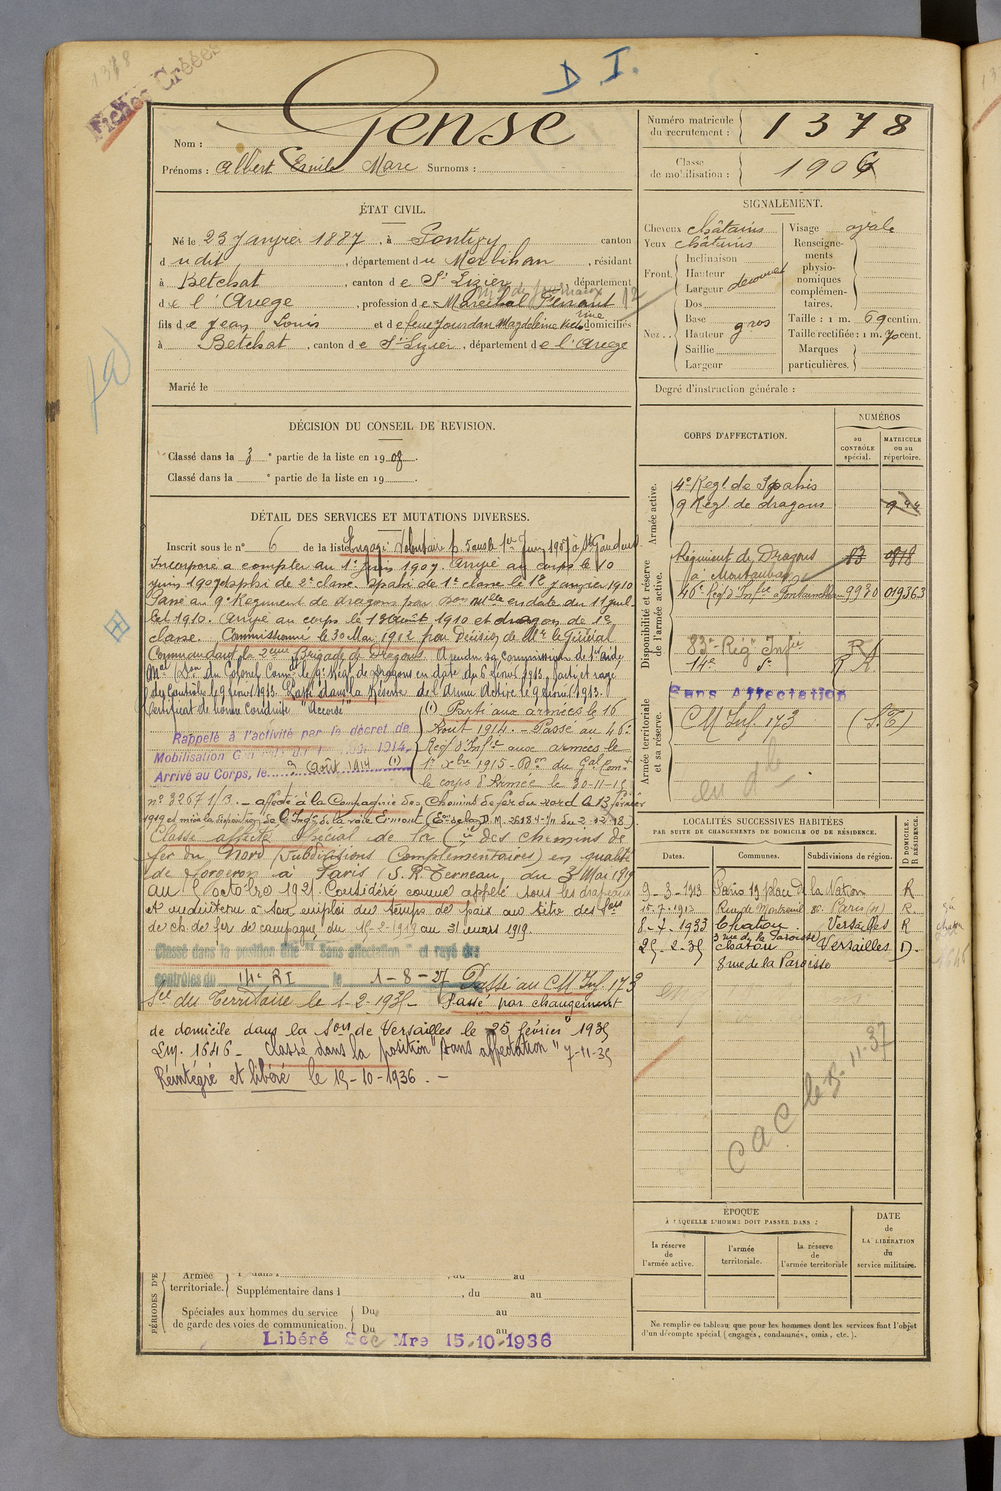 1378
Fiches Créées
D I.
Nom : Gense
Prénoms : Albert Emile Marc Surnoms :
Numéro matricule du recrutement : 1378
Classe de mobilisation : 1906
ÉTAT CIVIL.
Né le 23 Janvier 1887, à Pontivy canton
dudit, département du Morbihan, résidant
à Betchat, canton de St Lizier, département
de l'Ariege, profession de Maréchal Ferrant
fils de Jean Louis et de feue Jourdan Magdeleine domiciliés
à Betchat, canton de St Lizier, département de l'Ariege
Marié le
SIGNALEMENT.
Cheveux châtains
Yeux châtains
Front. Inclinaison
Hauteur
Largeur
Nez.. Dos
Base
Hauteur gros
Saillie
Largeur
Visage ovale
Renseignements physionomiques complémentaires.
Taille : 1 m. 69 centim.
Taille rectifiée : 1 m. 70 cent.
Marques particulières.
Degré d'instruction générale :
DÉCISION DU CONSEIL DE REVISION.
Classé dans la 3e partie de la liste en 1908.
Classé dans la e partie de la liste en 19
CORPS D'AFFECTATION.
NUMÉROS
au CONTRÔLE spécial.
MATRICULE ou au répertoire.
Armée active.
4e Regt de Spahis
9 Régt de dragons
Disponibilité et réserve de l'armée active.
Régiment de Dragons
à Montauban
46e Regt d'Infie à Fontainebleau 9980 019363
83e Régt Infie RA
14e do RA
Sans Affectation
Armée territoriale et sa réserve.
CM Inf. 173 (S.T)
DÉTAIL DES SERVICES ET MUTATIONS DIVERSES.
Inscrit sous le n° 6 de la liste Engagé Volontaire p. 5 ans le 1er Juin 1907 à St Gaudens
Incorporé à compter du 1er Juin 1907. Arrivé au corps le 10
juin 1907 spahi de 2e classe. Spahi de 1e classe le 12 janvier 1910
Passé au 9e Régiment de dragons par Don Mlle en date du 11 juil-
let 1910. Arrivé au corps le 13 Août 1910 et dragon de 1e
classe. Commissionné le 30 Mai 1912 par Décision de Mr le Général
Commandant la 2eme Brigade de Dragons.
Mal (Don du Colonel Commt le 9e Régt de Dragons en date du 6 Février 1913. Parti et rayé
des Contrôles le 9 février 1913. Passé dans la Réserve de l'Armée Active le 9 février 1913.
Certificat de bonne conduite "Accordé"
Rappelé à l'activité par le décret de
Mobilisation Générale du 1er Août 1914
Arrivé au Corps, le 3 Août 1914 (1)
(1) Parti aux armées le 16
Août 1914. - Passé au 46e
Regt d'Infie aux armées le
1er Xbre 1915 - Don du Gal Comt
le corps d'Armée le 30-11-15
n° 3267 1/3. - affecté à la Compagnie des Chemins de fer du nord le 13 février
1919 et mis à la disposition de l'Ingr de la voie Ermont
Classé affecté spécial de la Cie des chemins de
fer du Nord (Subdivisions Complémentaires) en qualité
de forgeron à Paris (S.R. Terneau, du 3 Mai 1919
au 1 octobre 1921. Considéré comme appelé sous les drapeaux
et maintenu à son emploi du temps de paix au titre des Sons
de ch. de fer de campagne, du 15-2-1919 au 31 mars 1919.
Classé dans la position dite "Sans affectation" et rayé des
contrôles du 14e RI le 1-8-27 Passé au CM Inf. 173
Sce du Territoire le 1-2-1935 - Passé par changement
de domicile dans la Son de Versailles le 25 février 1935
Lm. 1646 - Classé dans la position "Sans affectation" 7-11-35
Réintégré et libéré le 15-10-1936. -
LOCALITÉS SUCCESSIVES HABITÉES
PAR SUITE DE CHANGEMENTS DE DOMICILE OU DE RÉSIDENCE.
Dates. Communes. Subdivisions de région. D DOMICILE. R RÉSIDENCE.
9-3-1913 Paris 19 place de la Nation R
15-7-1913 Rue de Montreuil 80 Paris R.
8-7-1933 Chatou Versailles R
3 rue de la Paroisse
25-2-35 Chatou Versailles D.
8 rue de la Paroisse
cac le 15-11-37
ÉPOQUE
À LAQUELLE L'HOMME DOIT PASSER DANS :
la réserve de l'armée active.
l'armée territoriale.
la réserve de l'armée territoriale
DATE de LA LIBÉRATION du service militaire.
PÉRIODES D'E
Armée territoriale. 1re dans l , du au
Supplémentaire dans l , du au
Spéciales aux hommes du service de garde des voies de communication. Du au
Du au
Libéré Sce Mre 15-10-1936
Ne remplir ce tableau que pour les hommes dont les services font l'objet
d'un décompte spécial (engagés, condamnés, omis, etc.).